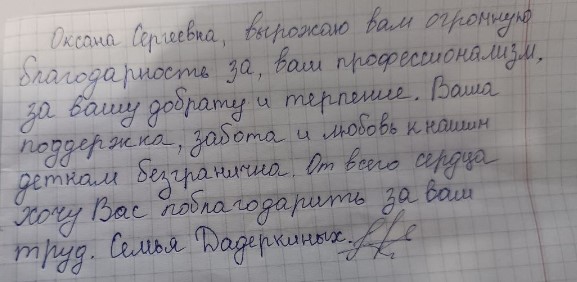 Оксана Сергеевна, вырожаю вам огромную
благодарность за, ваш профессионализм,
за вашу доброту и терпение. Ваша
поддержка, забота и любовь к нашим
деткам безгранична. От всего сердца
хочу Вас поблагодарить за ваш
труд. Семья Дадеркиных.